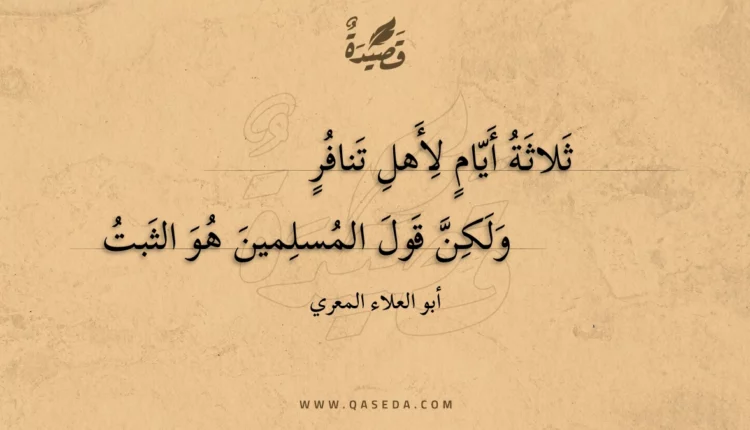 قَصِيْدَةٌ
ثَلاثَةُ أَيّامٍ لِأَهلِ تَنافُرٍ
وَلَكِنَّ قَولَ المُسلِمينَ هُوَ الثَبتُ
أبو العلاء المعري
WWW.QASEDA.COM